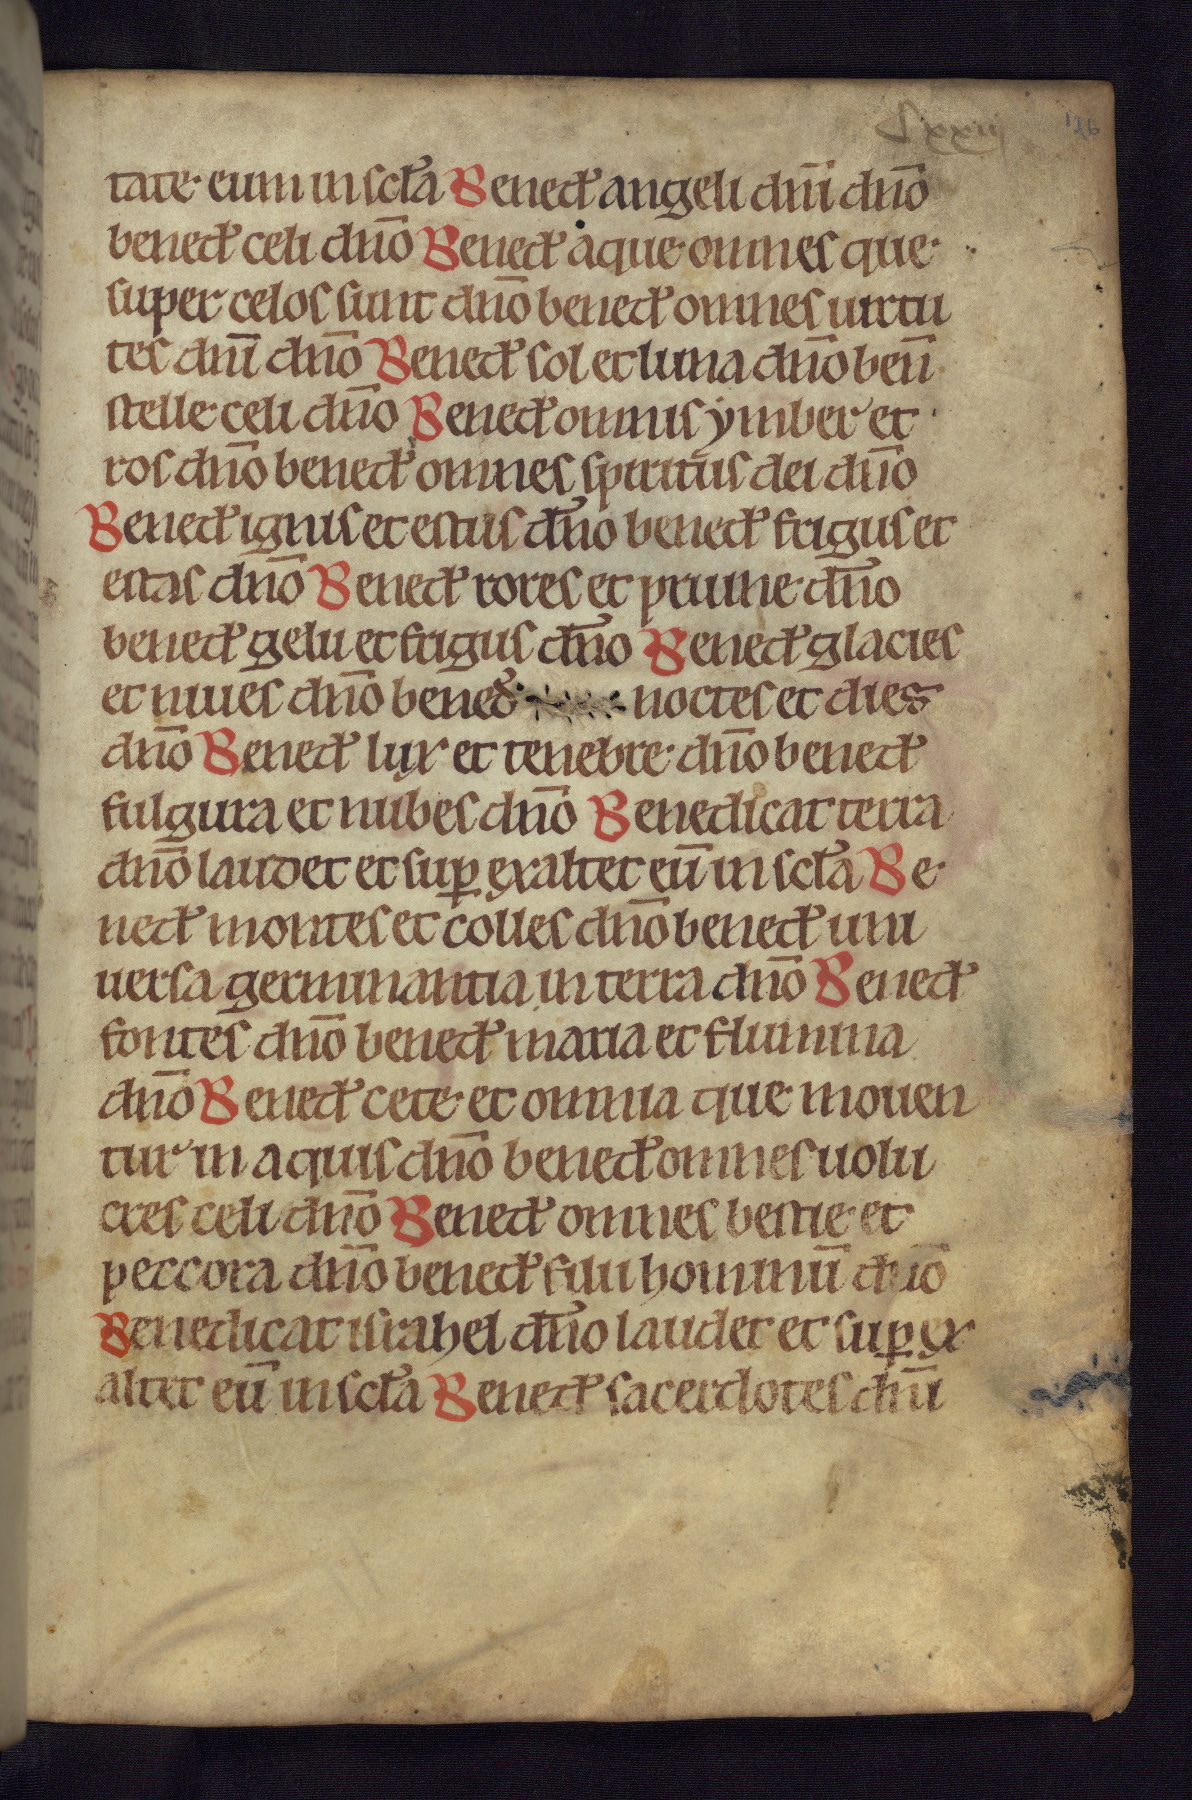 126
tate eum in sc̃la Bened̃ angeli dñi dño
bened̃ celi dño Bened̃ aque omnes que
super celos sunt dño bened̃ omnes uirtu
tes dñi dño Bened̃ sol et luna dño beñ
stelle celi dño Bened̃ omnis ymber et
ros dño bened̃ omnes spiritus dei dño
Bened̃ ignis et estus dño bened̃ frigus et
estas dño Bened̃ rores et pruine dño
bened̃ gelu et frigus dño Bened̃ glacies
et niues dño bened̃ noctes et dies
dño Bened̃ lux et tenebre dño bened̃
fulgura et nubes dño Benedicat terra
dño laudet et suꝑ exaltet eũ in sc̃la Be
ned̃ montes et colles dño bened̃ uni
uersa germinantia in terra dño Bened̃
fontes dño bened̃ maria et flumina
dño Bened̃ cete et omnia que mouen
tur in aquis dño bened̃ omnes uolu
cres celi dño Bened̃ omnes bestie et
peccora dño bened̃ filii hominũ dño
Benedicat israhel dño laudet et suꝑ ex
altet eũ in sc̃la Bened̃ sacerdotes dñi